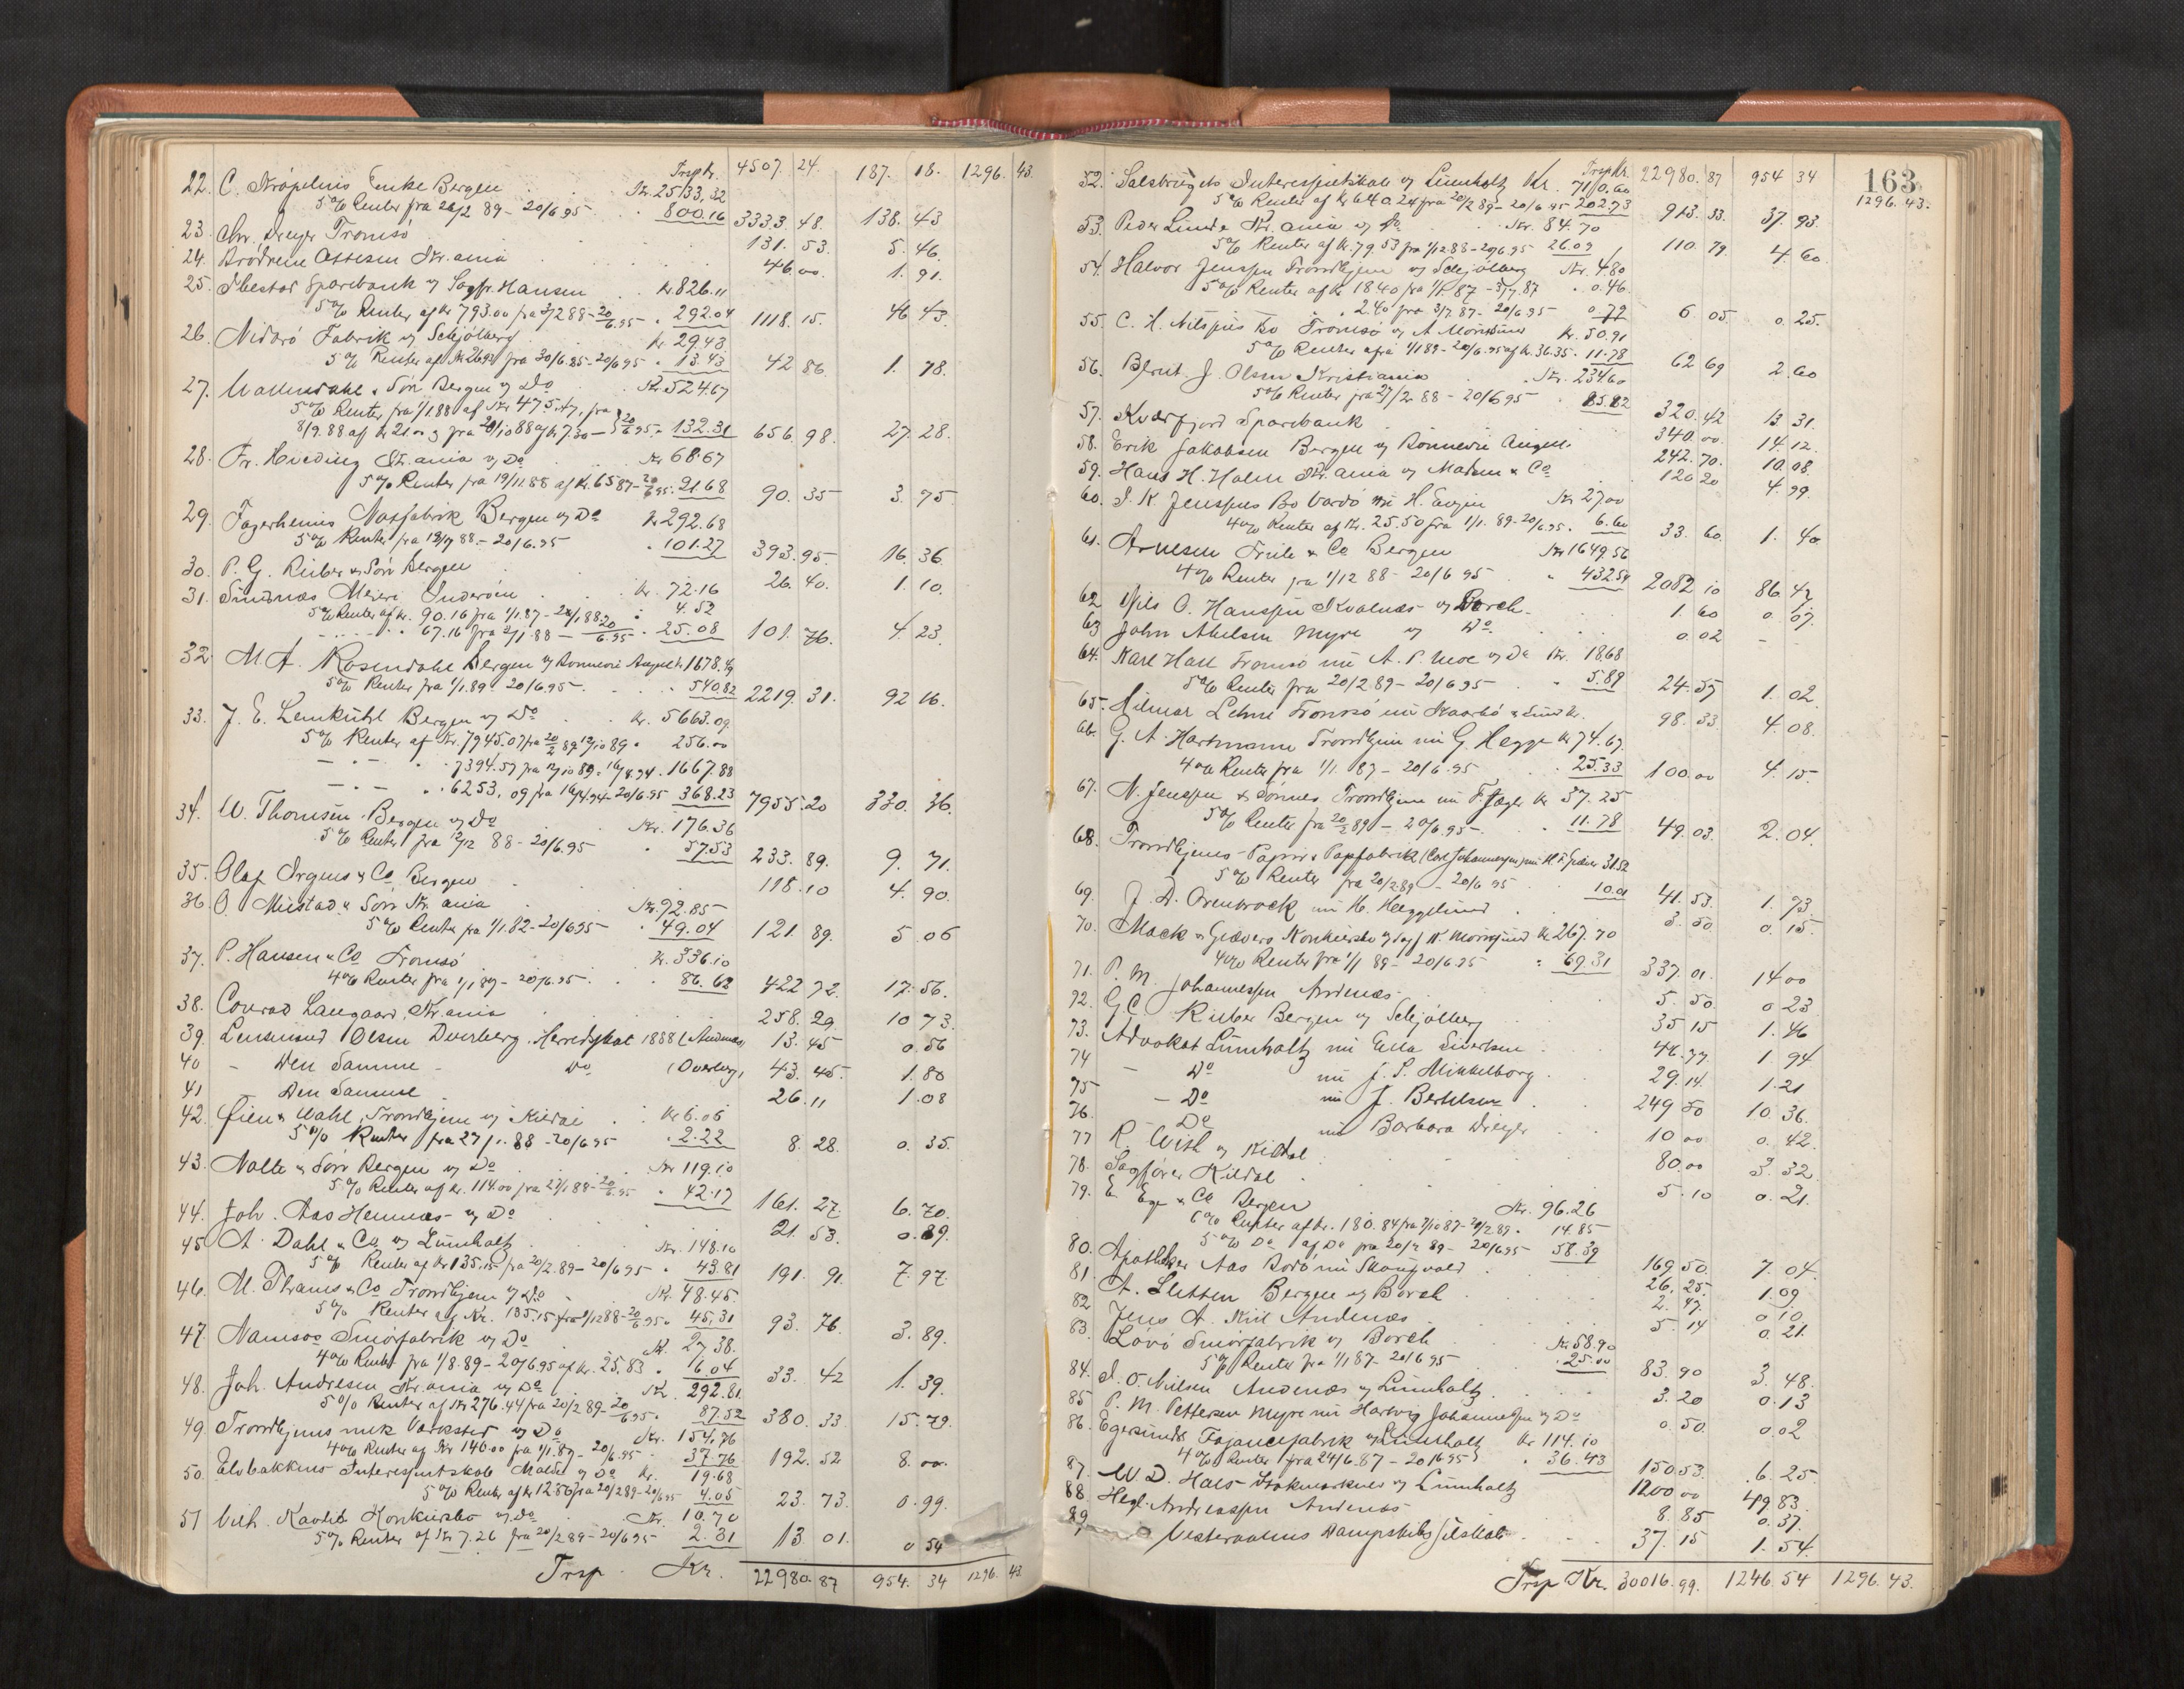 Trsp Kr. 4507. 24. 187. 18. 1296. 43.
22. C. Krøpelins Enke Bergen Kr. 2533,32
5% Renter fra 20/2 89 - 20/6 95 800.16 3333. 48. 138. 43
23. Chr. Dreyer Tromsö 131. 53. 5. 46.
24. Brödrene Kr.ania 46.00. 1. 91.
25. Ibestad Sparebank v/ Sagfr. Hansen Kr 826.11
5% Renter af Kr 793.00 fra 288 - 20/6.95 292.04 1118. 15. 46 43.
26. Nidarö Fabrik v/ Schjölberg Kr 29.43
5% Renter af Kr 26.92 fra 30/6.85 - 20/6 95 13.43 42 86. 1. 78.
27. Wallendahl & Sön Bergen v/ Do Kr. 524.67
5% Renter fra 1/1.88 af Kr 475.17, fra
8/9.88 af Kr 21.00 & fra 20/10 88 af Kr 7.30 - 20/6 95. 132.31 656. 98. 27. 28.
28. Fr. Hvieding Kr.ania v/ Do Kr 68.67
5% Renter fra 19/11.88 af Kr. 65.87 - 20/6 95. 21.68 90. 35 3. 75
29. Fagerheims Notfabrik Bergen v/ Do Kr 292.68
5% Renter fra 18/7 88 - 20/6.95 101.27 393. 95. 16. 36.
30. P. G. Rieber & Sön Bergen 26. 40. 1. 10.
31. Meieri Inderöen Kr. 72.16
5% Renter af Kr. 90.16 fra 1/1.87 - 20/1 88 4.52
67.16 fra 20/1 88 - 20/6.95 25.08 101. 76. 4. 23.
32. M. A. Rosendahl Bergen v/ Rönnevie Angell 1678.49
5% Renter fra 1/1.89 - 20/6.95 540.82 2219. 31. 92 16.
33. J. E. Lemkühl Bergen v/ Do Kr. 5663.09
5% Renter af Kr. 7945.07 fra 20/2 89 - 12/10 89 256.00
7394.57 fra 12/10 89 - 16/8.94 1667.88
6253,09 fra 16/4.94 - 20/6.95 368.23 7955. 20 330. 36.
34. W. Thomsen Bergen v/ Do Kr. 176.36
5% Renter fra 12/12 88 - 20/6.95 57.53 233. 89. 9. 71.
35. Olaf Irgens & Co Bergen 118. 10 4. 90.
36. O. Mustad & Sön Kr.ania Kr. 92.85
5% Renter fra 1/1.82 - 20/6 95 49.04 121. 89. 5. 06
37. P. Hansen & Co Tromsö Kr. 336.10
4% Renter fra 1/1 89 - 20/6.95 86.62 422 72. 17. 56.
38. Conrad Langaard, Kr.ania 258. 29. 10 73.
39. Lensmand Olsen Dverberg, Herredskat 1888 (Andenæs) 13. 45 0. 56
40 - Den Samme - Do (Dverberg) 43. 45. 1. 80
41 Den Samme 26. 11 1. 08
42. Öien & Wahl, Trondhjem v/ Kildal Kr 6.06
5% Renter fra 27/1. 88 - 20/6 95 2.22 8. 28. 0. 35.
43. Nolte & Sön Bergen v/ Do Kr 119.10
5% Renter af Kr. 114.00 fra 27/1 88 - 20/6 95 42.17 161. 27. 6. 70.
44. Joh. Aas Hemnæs v/ Do 21. 53. 0. 89.
45 A. Dahl & Co v/ Lünholtz Kr. 148.10
5% Renter af Kr 135.15 fra 20/2.89 - 20/6 95 43.81 191. 91. 7. 97.
46. M. Thams & Co Trondhjem v/ Do Kr. 48.45
5% Renter af Kr. 135.15 fra 1/12 88 - 20/6 95. 45,31 93. 76. 3. 89.
47. Namsos Smörfabrik v/ Do Kr. 27.38.
4% Renter fra 1/8.89 - 20/6.95 af Kr. 25,83 6.04 33. 42 1. 39.
48. Joh. Andresen Kr.ania v/ Do Kr. 292.81
5% Renter af Kr 276.44 fra 20/2 89 - 20/6.95. 87.52 380. 33 15. 79.
49 Trondhjems mek Værksted v/ Do Kr. 154,76
4% Renter af Kr 140.00 fra 1/1.87 - 20/6.95 37.76 192. 52 8. 00.
50. Elvbakkens Interessentskab Molde v/ Do Kr. 19.68
5% Renter af Kr 12.86 fra 20/2 89 - 20/6 95 4.05 23. 73. 0. 99.
51 Vilh. Kavlie v/ Do Kr. 10.70
5% Renter af Kr 7.26 fra 20/2 89 - 20/6 95 2.31 13. 01. 0 54
Trsp. Kr. 22980. 87 954. 34 1296. 43
163
Trsp Kr. 22980. 87 954 34 1296. 43.
52. Salsbrugets Interessentskab v/ Lünholtz Kr. 710.60
5% Renter af Kr 640.24 fra 20/2 89 - 20/6 95 202.73 913. 33. 37. 93.
53. Peder Linde Kr.ania v/ Do Kr. 84.70
5% Renter af Kr. 79.53 fra 1/12 88 - 20/6 95 26.09 110. 79. 4. 60.
54. Halvor Jenssen Trondhjem v/ Schjölberg Kr. 4.80
5% Renter af Kr 18.40 fra 1/1 87 - 3/7.87 0.46.
2.40 fra 3/7.87 - 20/6 95 0.79 6. 05 0. 25.
55. C. H. Nilssens Bo Tromsö v/ A Kr. 50.91
5% Renter fra 1/1 89 - 20/6.95 af Kr. 36.35. 11.78 62 69 2. 60
56. Bernt J. Olsen Kristiania Kr. 234.60
5% Renter fra 27/2. 88 - 20/6 95 85.82 320. 42 13. 31.
57. Kvæfjord Sparebank 340. 00. 14. 12.
58. Erik Jakobsen Bergen v/ Rönnevie Angell. 242. 70. 10. 08.
59. Hans H. Holm Kr.ania v/ Madsen & Co 120 20 4. 99.
60. J. K. Jenssens Bo Vardö m: H. Kr 27.00
4% Renter af Kr. 25.50 fra 1/1. 89 - 20/6 95. 6.60 33. 60. 1. 40
61. Arnesen Friele & Co Bergen Kr 1649.56
4% Renter fra 1/12 88 - 20/6 95 432.54 2082 10 86. 47
62 Nils O. Hanssen Kvalnæs v/ Borch 1. 60 0. 07.
63 John Abelsen Myre v/ Do. 0. 02 -
64. Karl Hall Tromsö m: A. P. Moe v/ Do Kr. 18.68
5% Renter fra 20/2.89 - 20/6 95 5.89 24. 57 1. 02.
65. Hilmar Lehne Tromsö m: Skaarbö 98. 33 4. 08.
66. G. A. Hartmann Trondhjem m: G. Hegge Kr 74.67.
4% Renter fra 1/1. 87 - 20/6.95 25.33 100. 00 4. 15.
67. N. Jenssen & Sönner Trondhjem m: F. Jæger Kr 37. 25
5% Renter fra 20/2 89 - 20/6.95 11.78 49. 03. 2. 04.
68. Trondhjems Papir & Papfabrik (Carl Johannessen) m: 31.52
5% Renter fra 20/2.89 - 20/6 95 10.01 41. 53. 1. 73
69. J. D. m: H. Heggelund 3. 50. 0. 15.
70. Mack & Giævers v/ Sagf. Kr 267.70
4% Renter fra 1/1 89 - 20/6.95 69.31 337. 01. 14 00
71. P. M. Johannessen Andenæs 5. 50. 0 23
72. G. C. Rieber Bergen v/ Schjölberg 35 15 1. 46
73. Advokat Lünholtz m: Ella Sivertsen 46. 77. 1 94
74 - Do m: J. S. Mikkelborg 29. 14. 1. 21
75 - Do m: J. Berthelsen 249 50 10. 36.
76. Do m: Barbara Dreyer 10 00 0. 42.
77 R. With v/ Kildal 80. 00 3. 32.
78. Sagförer Kildal 5. 10 0. 21.
79. E. Ege & Co Bergen Kr. 96.26
6% Renter af Kr. 180.84 fra 7/10 87 - 20/2 89 14.85
5% Do af Do fra 20/2 89 - 20/6 95 58.39 169 50. 7. 04.
80. Apotheker Aas Bodö m: 26. 25. 1. 09
81. A. Sletten Bergen v/ Borch 2. 47. 0 10.
82 Jens A. Kiil Andenæs 5. 14 0. 21.
83. Lövö Smörfabrik v/ Borch Kr 58.90
5% Renter fra 1/1 87 - 20/6 95 25.00 83. 90 3. 48.
84. J. O. Nilsen Andenæs v/ Lünholtz 3. 20 0. 13
85 P. M. Pettersen Myre m: Hartvig Johannessen v/ Do 0. 50. 0. 02
86. Egersunds Fajancefabrik v/ Lünholtz Kr 114.10
4% Renter fra 24/6.87 - 20/6 95 36.43 150 53. 6. 25.
87. W. D. Hals Stokmarknes v/ Lünholtz 1200 00 49 83.
88 Hegl. Andreassen Andenæs 8. 85 0. 37.
89 Vesteraalens Dampskibsselskab 37. 15 1. 54.
Trsp Kr. 30016. 99. 1246. 54 1296. 43.